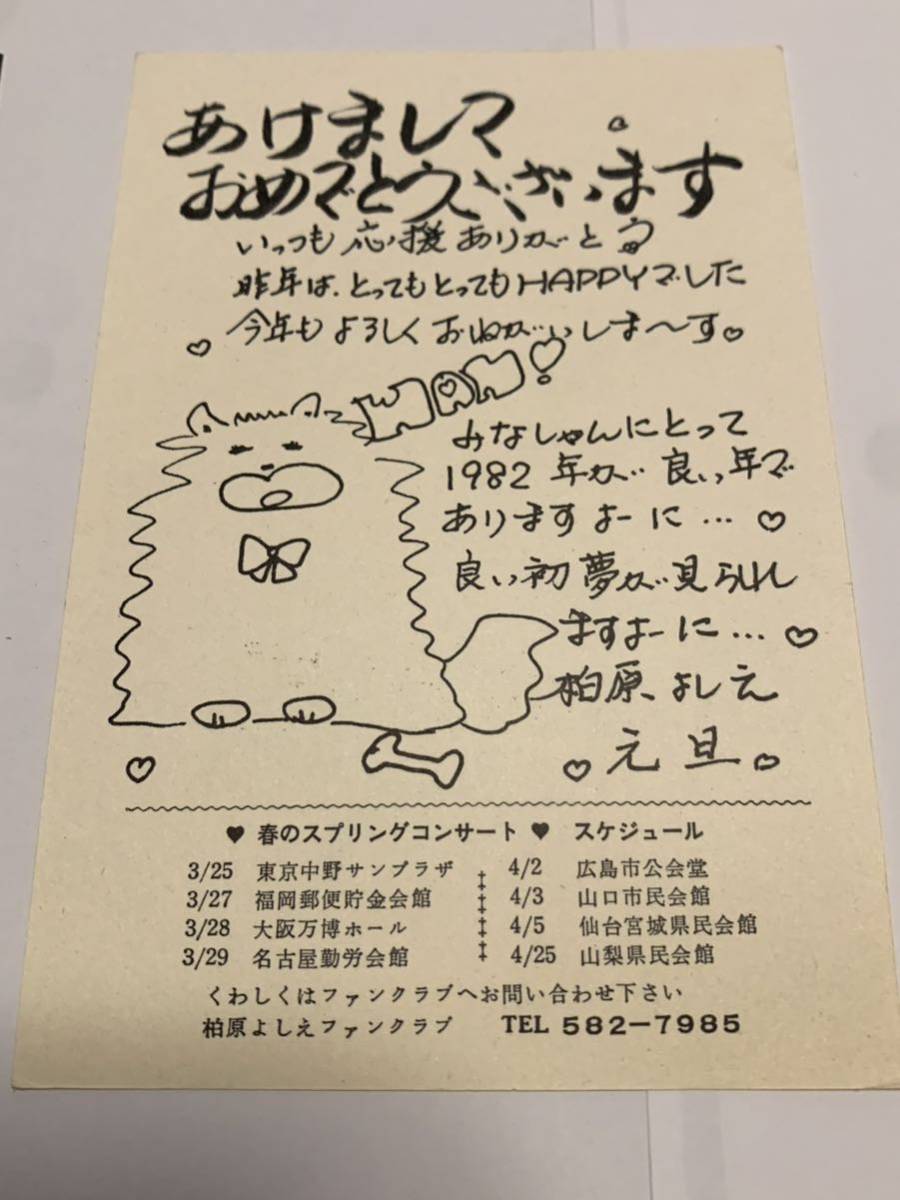 あけまして
おめでとうございます
いっつも応援ありがとう
昨年は、とってもとってもHAPPYでした
今年もよろしくおねがいしま〜す
WAN!
みなしゃんにとって
1982年が良い年で
ありますよーに…
良い初夢が見られ
ますよーに…
柏原よしえ
元旦
♥ 春のスプリングコンサート ♥ スケジュール
3/25 東京中野サンプラザ 4/2 広島市公会堂
3/27 福岡郵便貯金会館 4/3 山口市民会館
3/28 大阪万博ホール 4/5 仙台宮城県民会館
3/29 名古屋勤労会館 4/25 山梨県民会館
くわしくはファンクラブへお問い合わせ下さい
柏原よしえファンクラブ TEL 582-7985